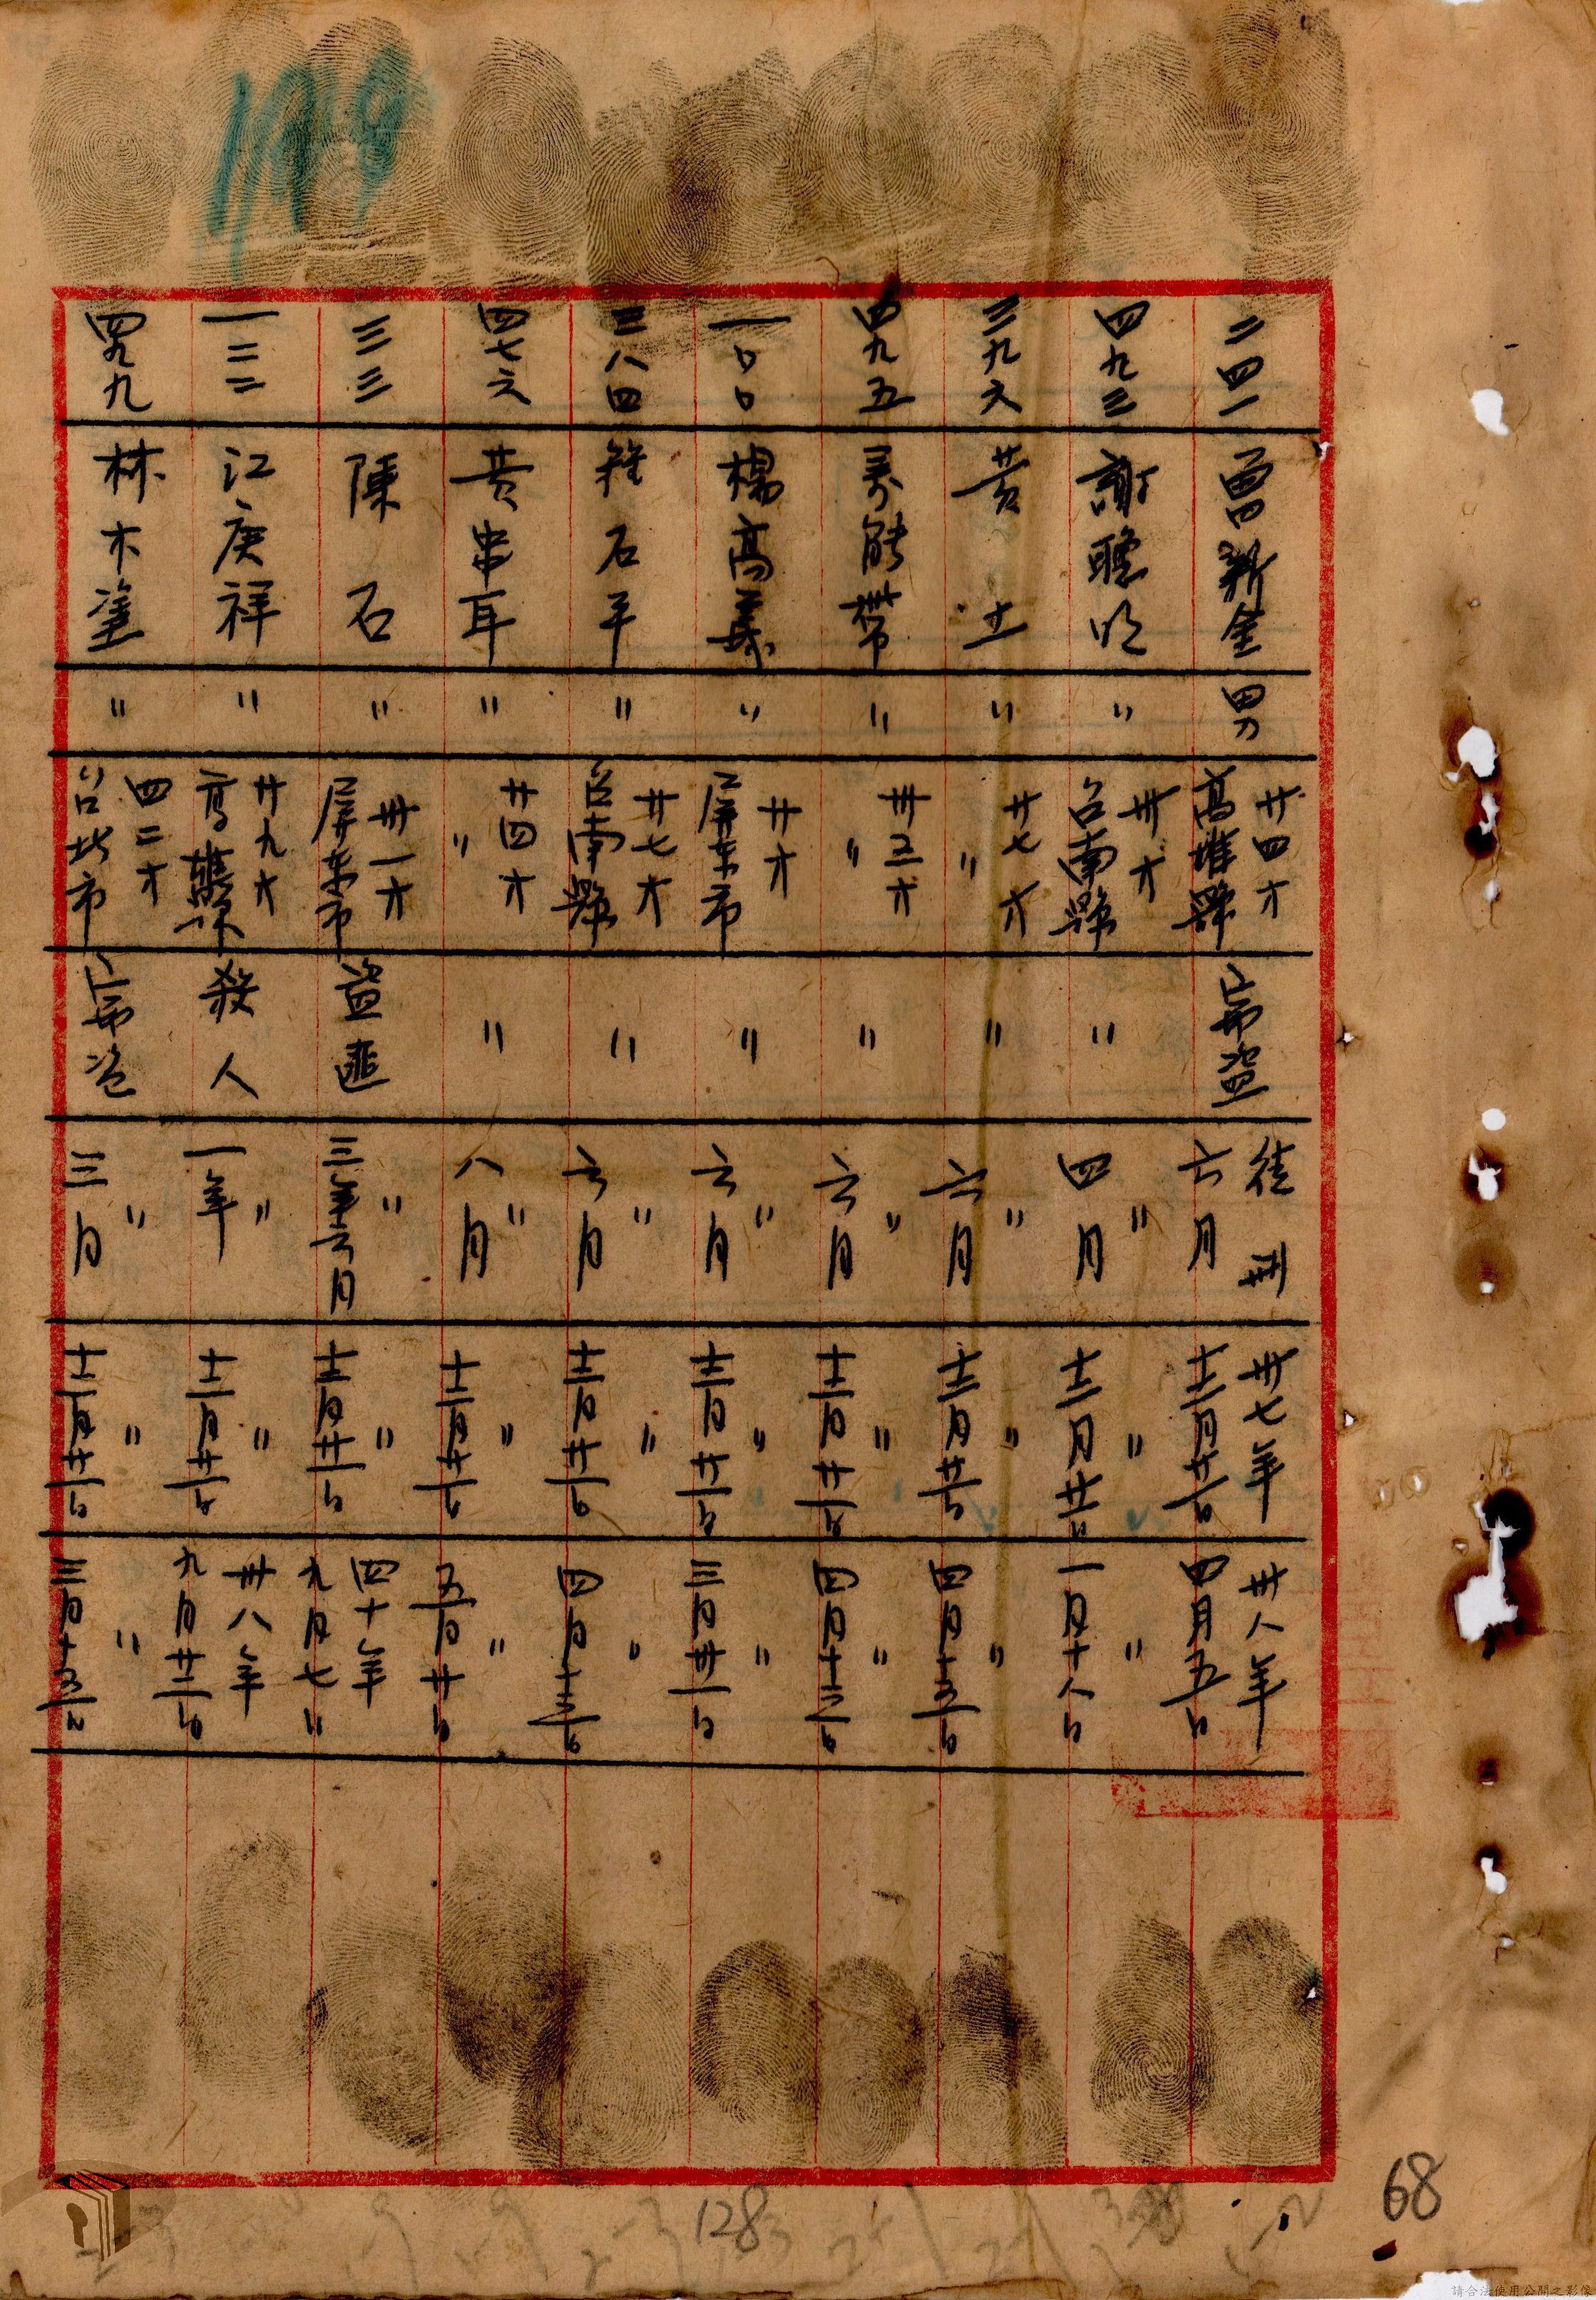 二四一 曾新金 男 廿四才 高雄縣 竊盜 徒刑 六月 卅七年 十二月廿一日 卅八年 四月五日
四九三 謝聰明 〃 卅才 台南縣 〃 〃 四月 〃 十二月廿一日 〃 一月十八日
三九六 黃土 〃 廿七才 〃 〃 〃 六月 〃 十二月廿一日 〃 四月十五日
四九五 能帶 〃 卅五才 〃 〃 〃 六月 〃 十二月廿一日 〃 四月十三日
一〇〇 楊高 〃 廿才 屏東市 〃 〃 六月 〃 十二月廿一日 〃 三月卅一日
三八四 程石平 〃 廿七才 台南縣 〃 〃 六月 〃 十二月廿一日 〃 四月十三日
四七六 黃串耳 〃 廿四才 〃 〃 〃 八月 〃 十二月廿一日 〃 五月廿日
三三三 陳石 〃 卅一才 屏東市 盜匪 〃 三年六月 〃 十二月廿一日 四十年 九月七日
一二二 江庚祥 〃 廿九才 高雄縣 殺人 〃 一年 〃 十二月廿一日 卅八年 九月廿三日
四九九 林木塗 〃 四二才 台北市 竊盜 〃 三月 〃 十二月廿一日 〃 三月十五日
128
68
請合法使用公開之影像